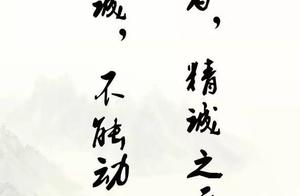 ，精诚之
诚，不能动